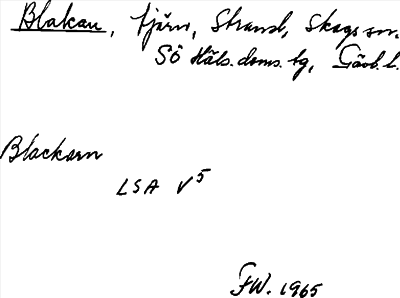 Blakan, tjärn, Strand, Skogs sn.
SÖ Häls. doms. tg, Gävl. l.
Blackarn
LSA V5
FW. 1965